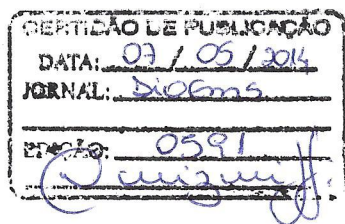 CERTIDÃO DE PUBLICAÇÃO
DATA: 07 / 05 / 2014
JORNAL: DIOEMS
EDIÇÃO: 0591